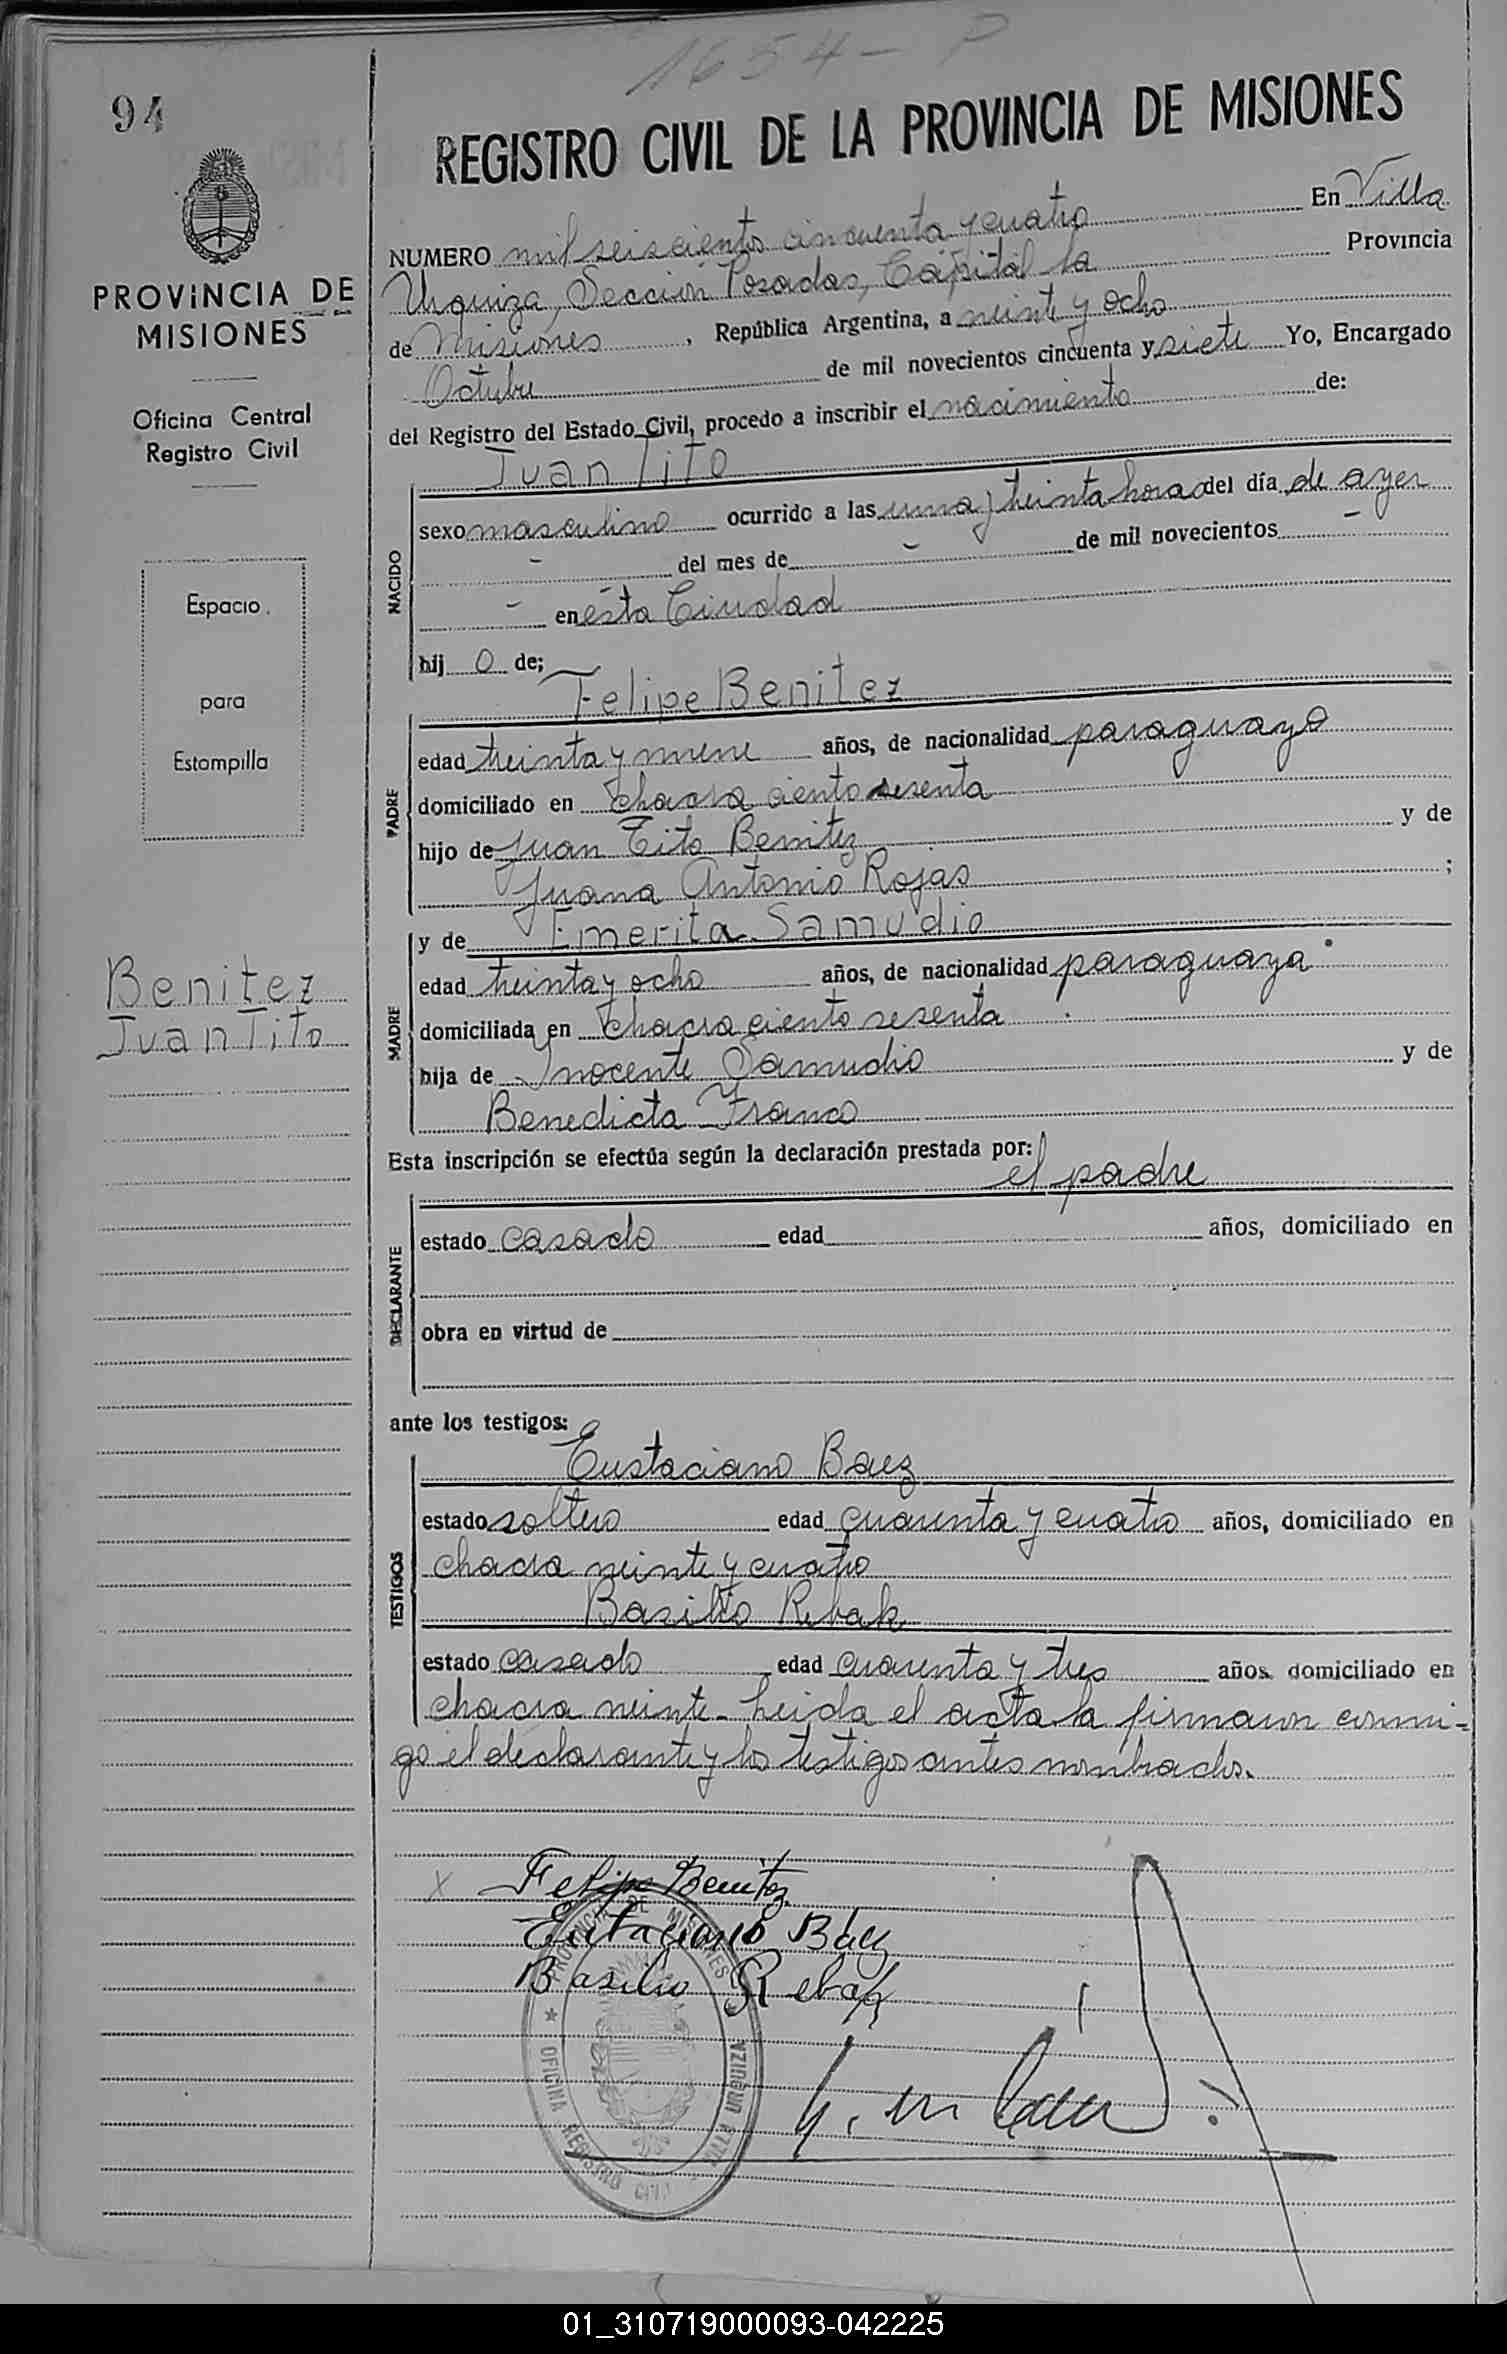 1654 - P
94
REGISTRO CIVIL DE LA PROVINCIA DE MISIONES
PROVINCIA DE
MISIONES
Oficina Central
Registro Civil
Espacio
para
Estampilla
Benitez
Juan Tito
NUMERO mil seiscientos cincuenta y cuatro En Villa
Urquiza, Sección Posadas, Capital la Provincia
de Misiones, República Argentina, a veinte y ocho
Octubre de mil novecientos cincuenta y siete Yo, Encargado
del Registro del Estado Civil, procedo a inscribir el nacimiento de:
NACIDO
Juan Tito
sexo masculino ocurrido a las una y treinta horas del día de ayer
- del mes de - de mil novecientos -
- en ésta Ciudad
hij o de;
PADRE
Felipe Benitez
edad treinta y nueve años, de nacionalidad paraguayo
domiciliado en chacra ciento sesenta
hijo de Juan Tito Benitez y de
Juana Antonio Rojas ;
MADRE
y de Emerita Samudio
edad treinta y ocho años, de nacionalidad paraguaya
domiciliada en chacra ciento sesenta
hija de Inocente Samudio y de
Benedicta Franco
Esta inscripción se efectúa según la declaración prestada por:
el padre
DECLARANTE
estado casado edad años, domiciliado en
obra en virtud de
ante los testigos:
TESTIGOS
Eustaciano Baez
estado soltero edad cuarenta y cuatro años, domiciliado en
chacra veinte y cuatro
Basilio Rebak
estado casado edad cuarenta y tres años domiciliado en
chacra veinte - Leida el acta la firmaron conmi-
go el declarante y los testigos antes nombrados.
x Felipe Benitez
Eutaciano Báez
Basilio Rebak
PROVINCIA DE MISIONES
* OFICINA REGISTRO CIVIL VILLA URQUIZA
01_310719000093-042225